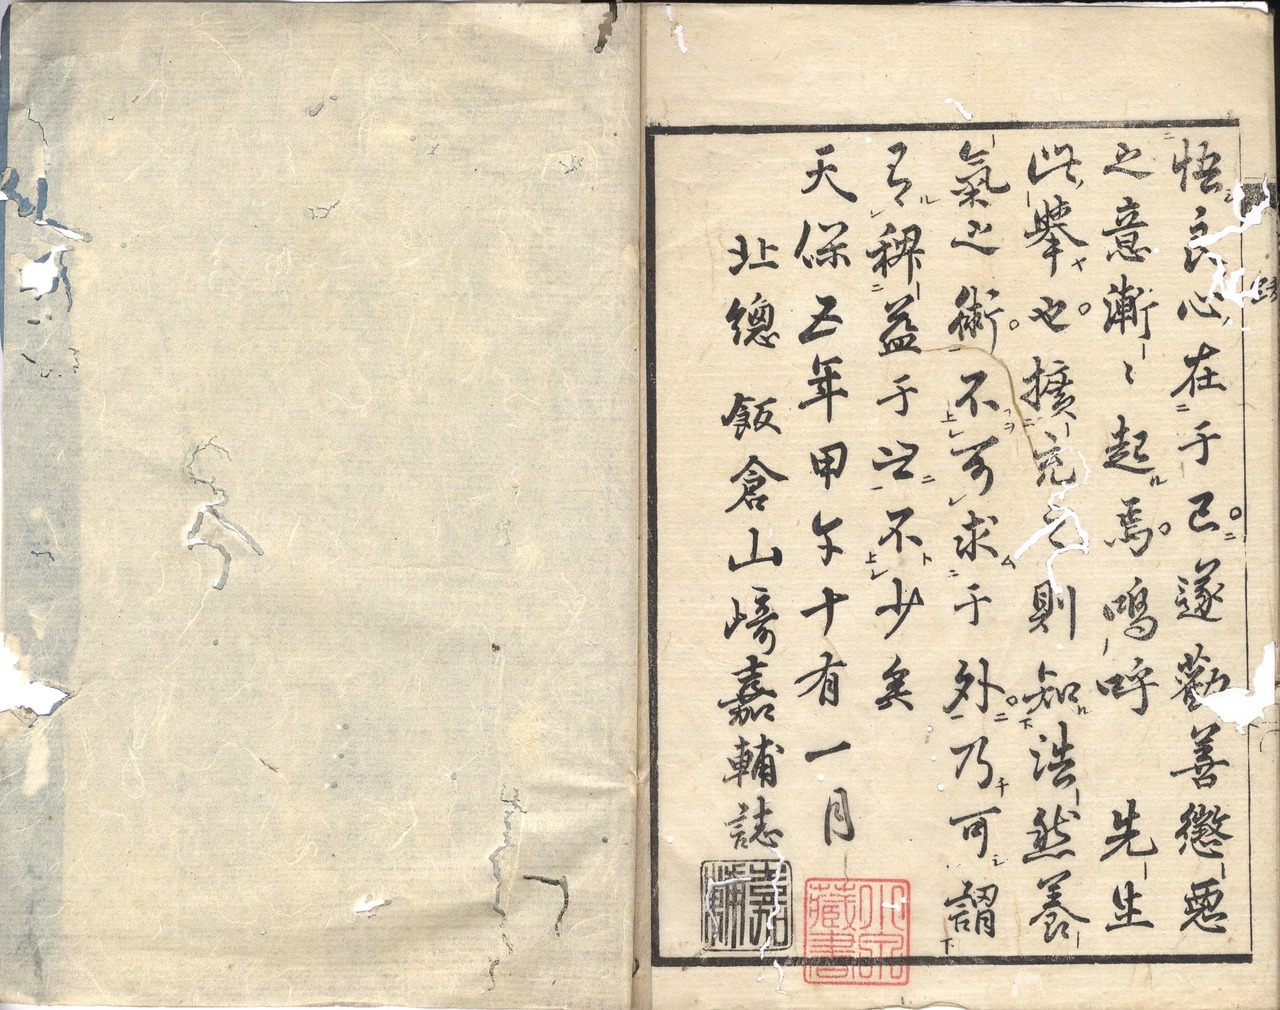 悟良心在于己遂勸善懲悪
之意漸〻起焉嗚呼 先生
此擧也擴充之則知浩然養
氣之術不可求于外乃可謂
有裨益于世不少矣
天保五年甲午十有一月
北總 飯倉山崎嘉輔誌
嘉輔
藏書